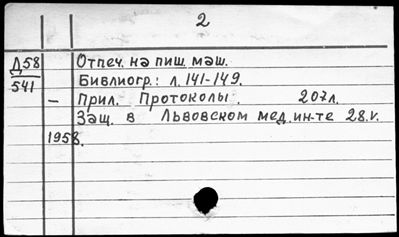 2
Д58 Отпеч. на пиш. маш.
541 Библиогр.: л. 141-149.
— Прил. Протоколы. 207л.
Защ. в Львовском мед. ин-те 28.V.
1958.